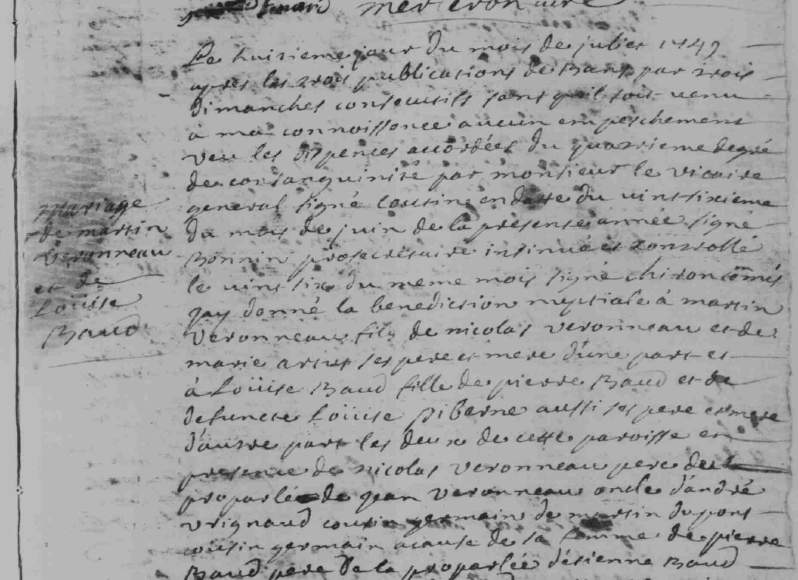 Le huitieme jour du mois de juliet 1749
apres les trois publications de Bans par trois
dimanches consecutifs sans qu'il soit venu
a ma connoissance aucun empeschement
veu les dispences accordées du quatrieme degré
de consanguinité par monsieur le vicaire
general signé Cousin en datte du vinstsixieme
du mois de juin de la presente année signé
Bonnin prosecretaire insinué et controllé
le vinstsix du meme mois signé chiron comis
jay donné la benediction nuptiale à martin
veronneau fils de nicolas veronneau et de
marie artus ses pere et mere d'une part et
à Loüise Baud fille de pierre Baud et de
defuncte Loüise Piberne aussi ses pere et mere
d'autre part les deux de cette paroisse en
presence de nicolas veronneau pere de
proparlée de jean veronneau oncle d'andré
vrignaud cousin germain de martin dupont
cousin germain acause de sa femme de pierre
Baud pere de la proparlée d'estienne Baud
mariage
de martin
veronneau
et de
Loüise
Baud